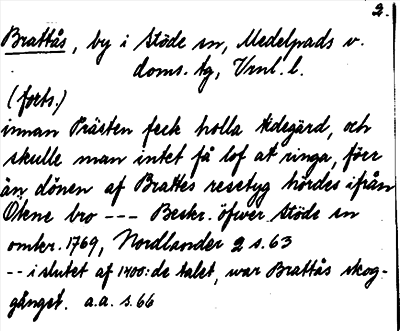 2.
Brattås, by i Stöde sn, Medelpads v.
doms. tg, Vrnl. l.
(forts.)
innan Prästen feck holla tidegärd, och
skulle man intet få lof at ringa, förr
än dönen af Brattes resetyg hördes ifrån
Ötene bro --- Beskr. öfwer Stöde sn
omkr. 1769, Nordlander 2 s. 63
-- i slutet af 1400: de talet, war Brattås skog-
gånget. a.a. s. 66